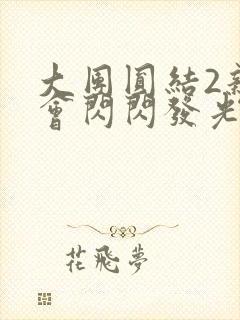 大團圓結2
會閃閃發光
花飛夢